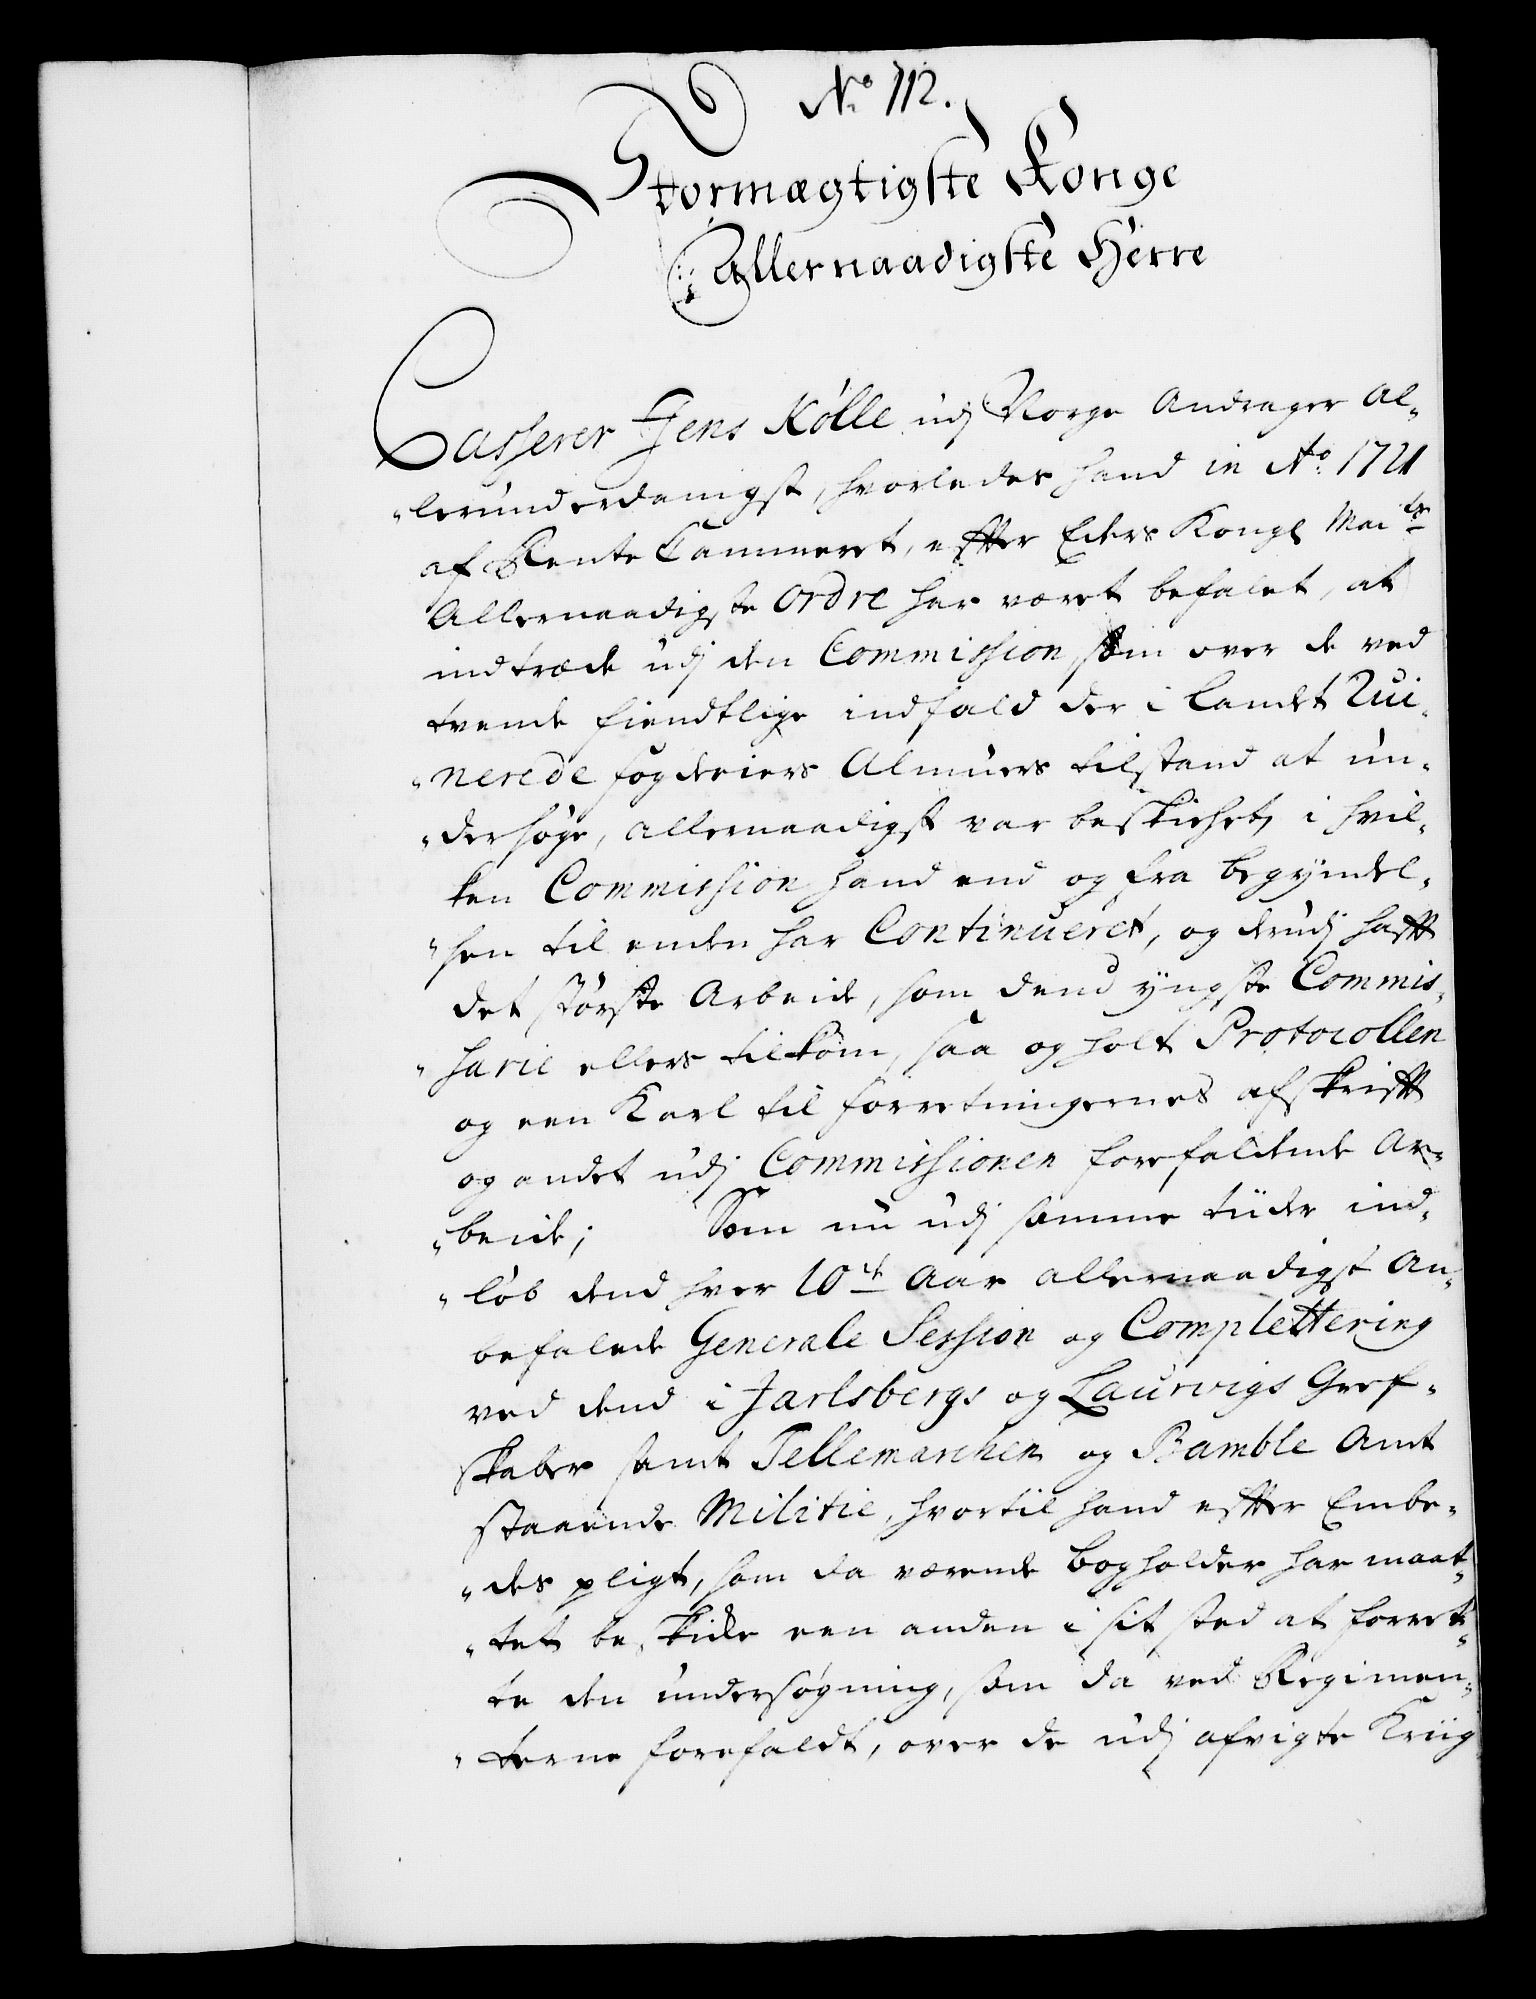 No 112.
Stormægtigste Konge
Allernaadigste Herre
Casserer Jens Kölle udj Norge Andrager al-
"lerunderdanigst, hvorledes hand in Ao 1721
af Rente Cammeret, efter Eders Kongl Maits
Allernaadigste Ordre har været befalet, at
indtræde udj den Commission, som over de ved
tvende fiendtlige indfald der i landet Rui-
"nerede fogderiers Almues tilstand at un-
"dersøge, allernaadigst var beskichet, i hvil-
ken Commission hand end og fra begyndel-
"sen til enden har Continueret, og derudj hafft
det største Arbeide, som dend yngste Commis-
"sarie ellers tilkom, saa og holt Protocollen
og een Karl til forretningernes afskrifft
og andet udj Commissionen forefaldende Ar-
"beide; Som nu udj samme tiider ind-
"løb dend hver 10de Aar allernaadigst An-
befalede Generale Session og Complettering
ved dend i Jarlsbergs og Laurvigs Gref-
skaber samt Tellemarchen og Bamble Amt
staaende Militie, hvortil hand efter Embe-
"des pligt, som da værende bogholder har maat-
"tet beskide een anden i sit sted at forret-
te den undersøgning, som da ved Regimen-
"terne forefaldt, over de udj afvigte Kriig